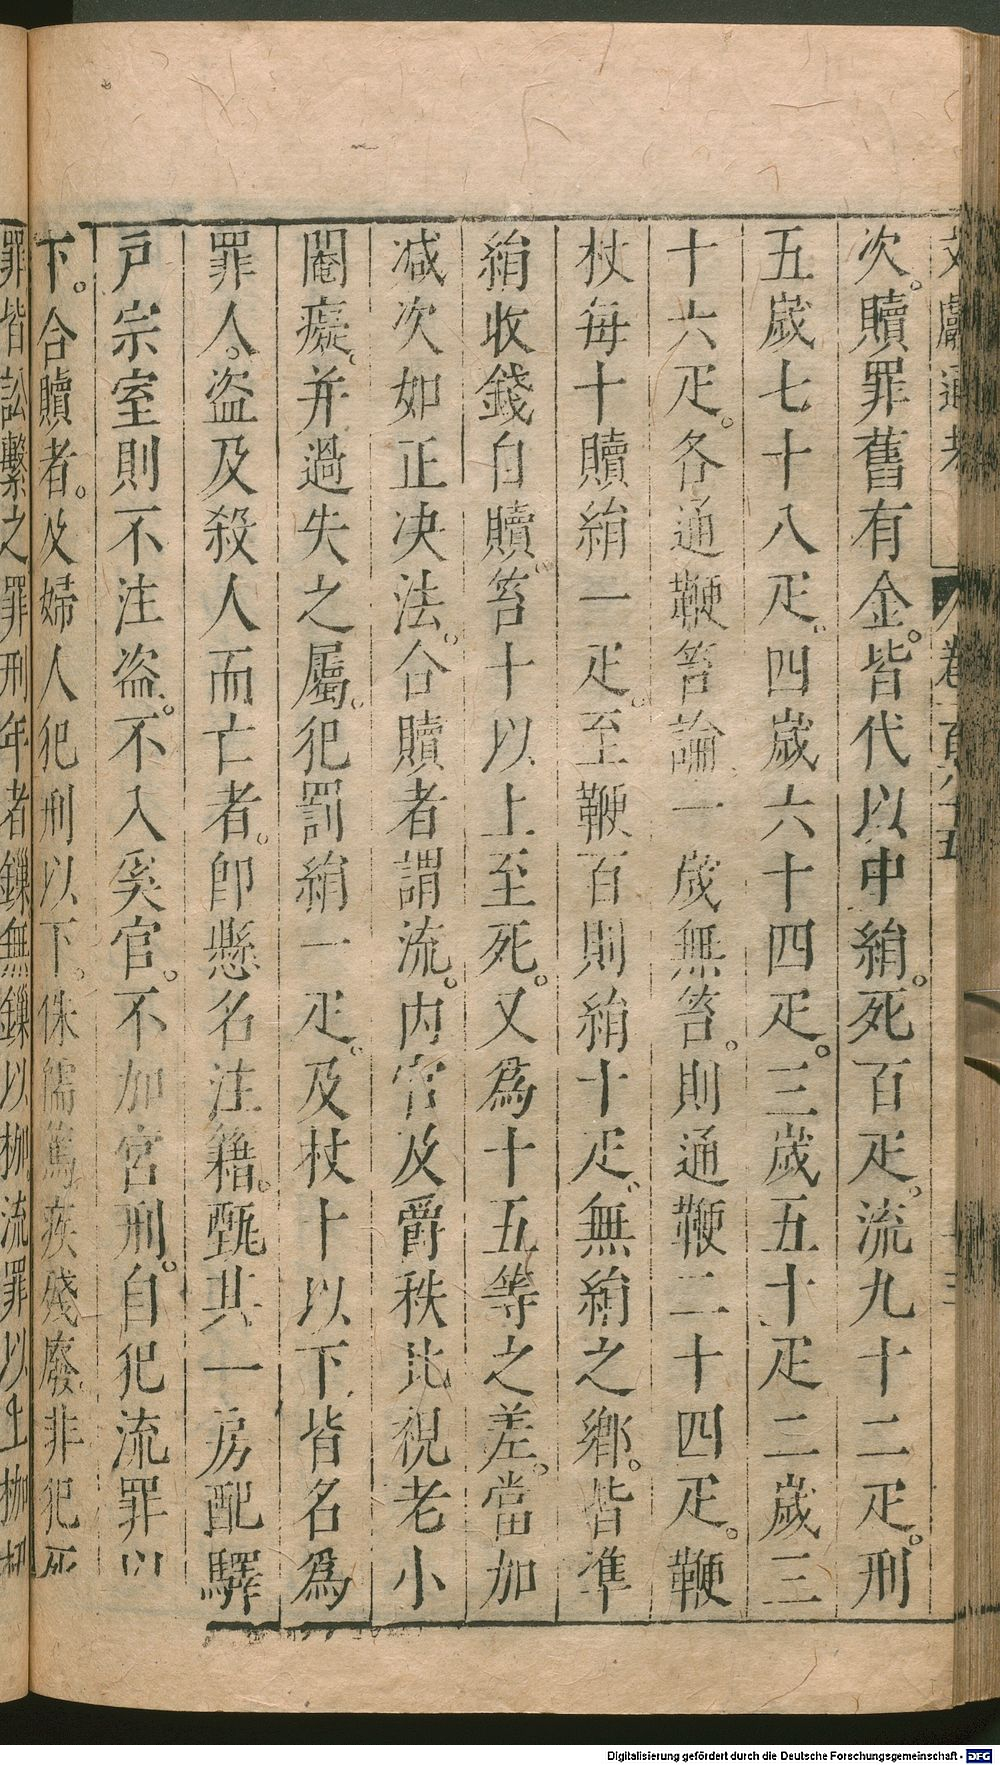 次。贖罪舊有金。皆代以中絹。死百疋。流九十二疋。刑
五歲七十八疋。四歲六十四疋。三歲五十疋二歲三
十六疋。各通鞭笞論一歲無笞。則通鞭二十四疋。鞭
杖每十贖絹一疋。至鞭百則絹十疋。無絹之鄉。皆準
絹收錢自贖。笞十以上至死。又爲十五等之差。當加
減次如正决法。合贖者謂流。内官及爵秩比視老小
閹癡。并過失之屬。犯罰絹一疋。及杖十以下皆名爲
罪人。盜及殺人而亡者。卽懸名注籍。甄其一房配驛
戸宗室則不注盜。不入奚官。不加宮刑。自犯流罪以
下。合贖者。及婦人犯刑以下。侏儒篤疾殘廢非犯死
罪皆訟繫之罪刑年者鏁無鏁以枷流罪以上枷杻
Digitalisierung gefördert durch die Deutsche Forschungsgemeinschaft - DFG